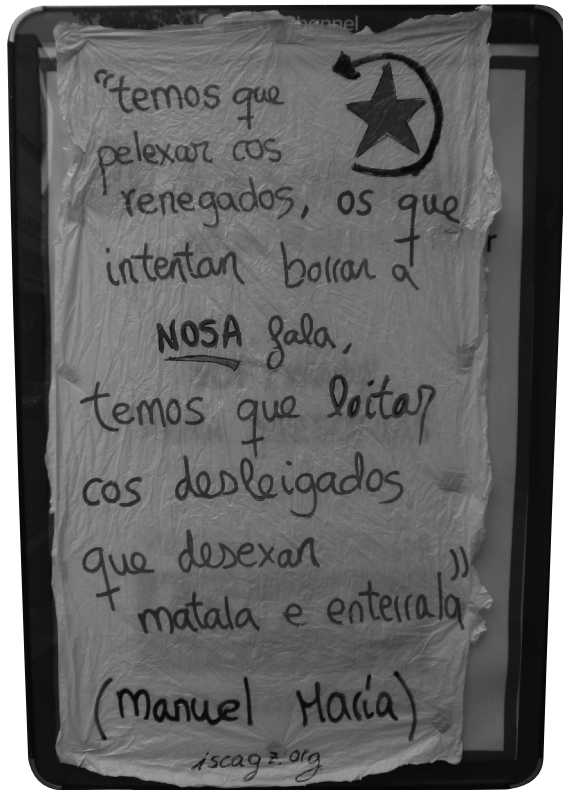 Channel
"temos que
pelexar cos
renegados, os que
intentan borrar a
NOSA fala,
temos que loitar
cos desleigados
que desexan
matala e enterrala"
(Manuel María)
iscagz.org